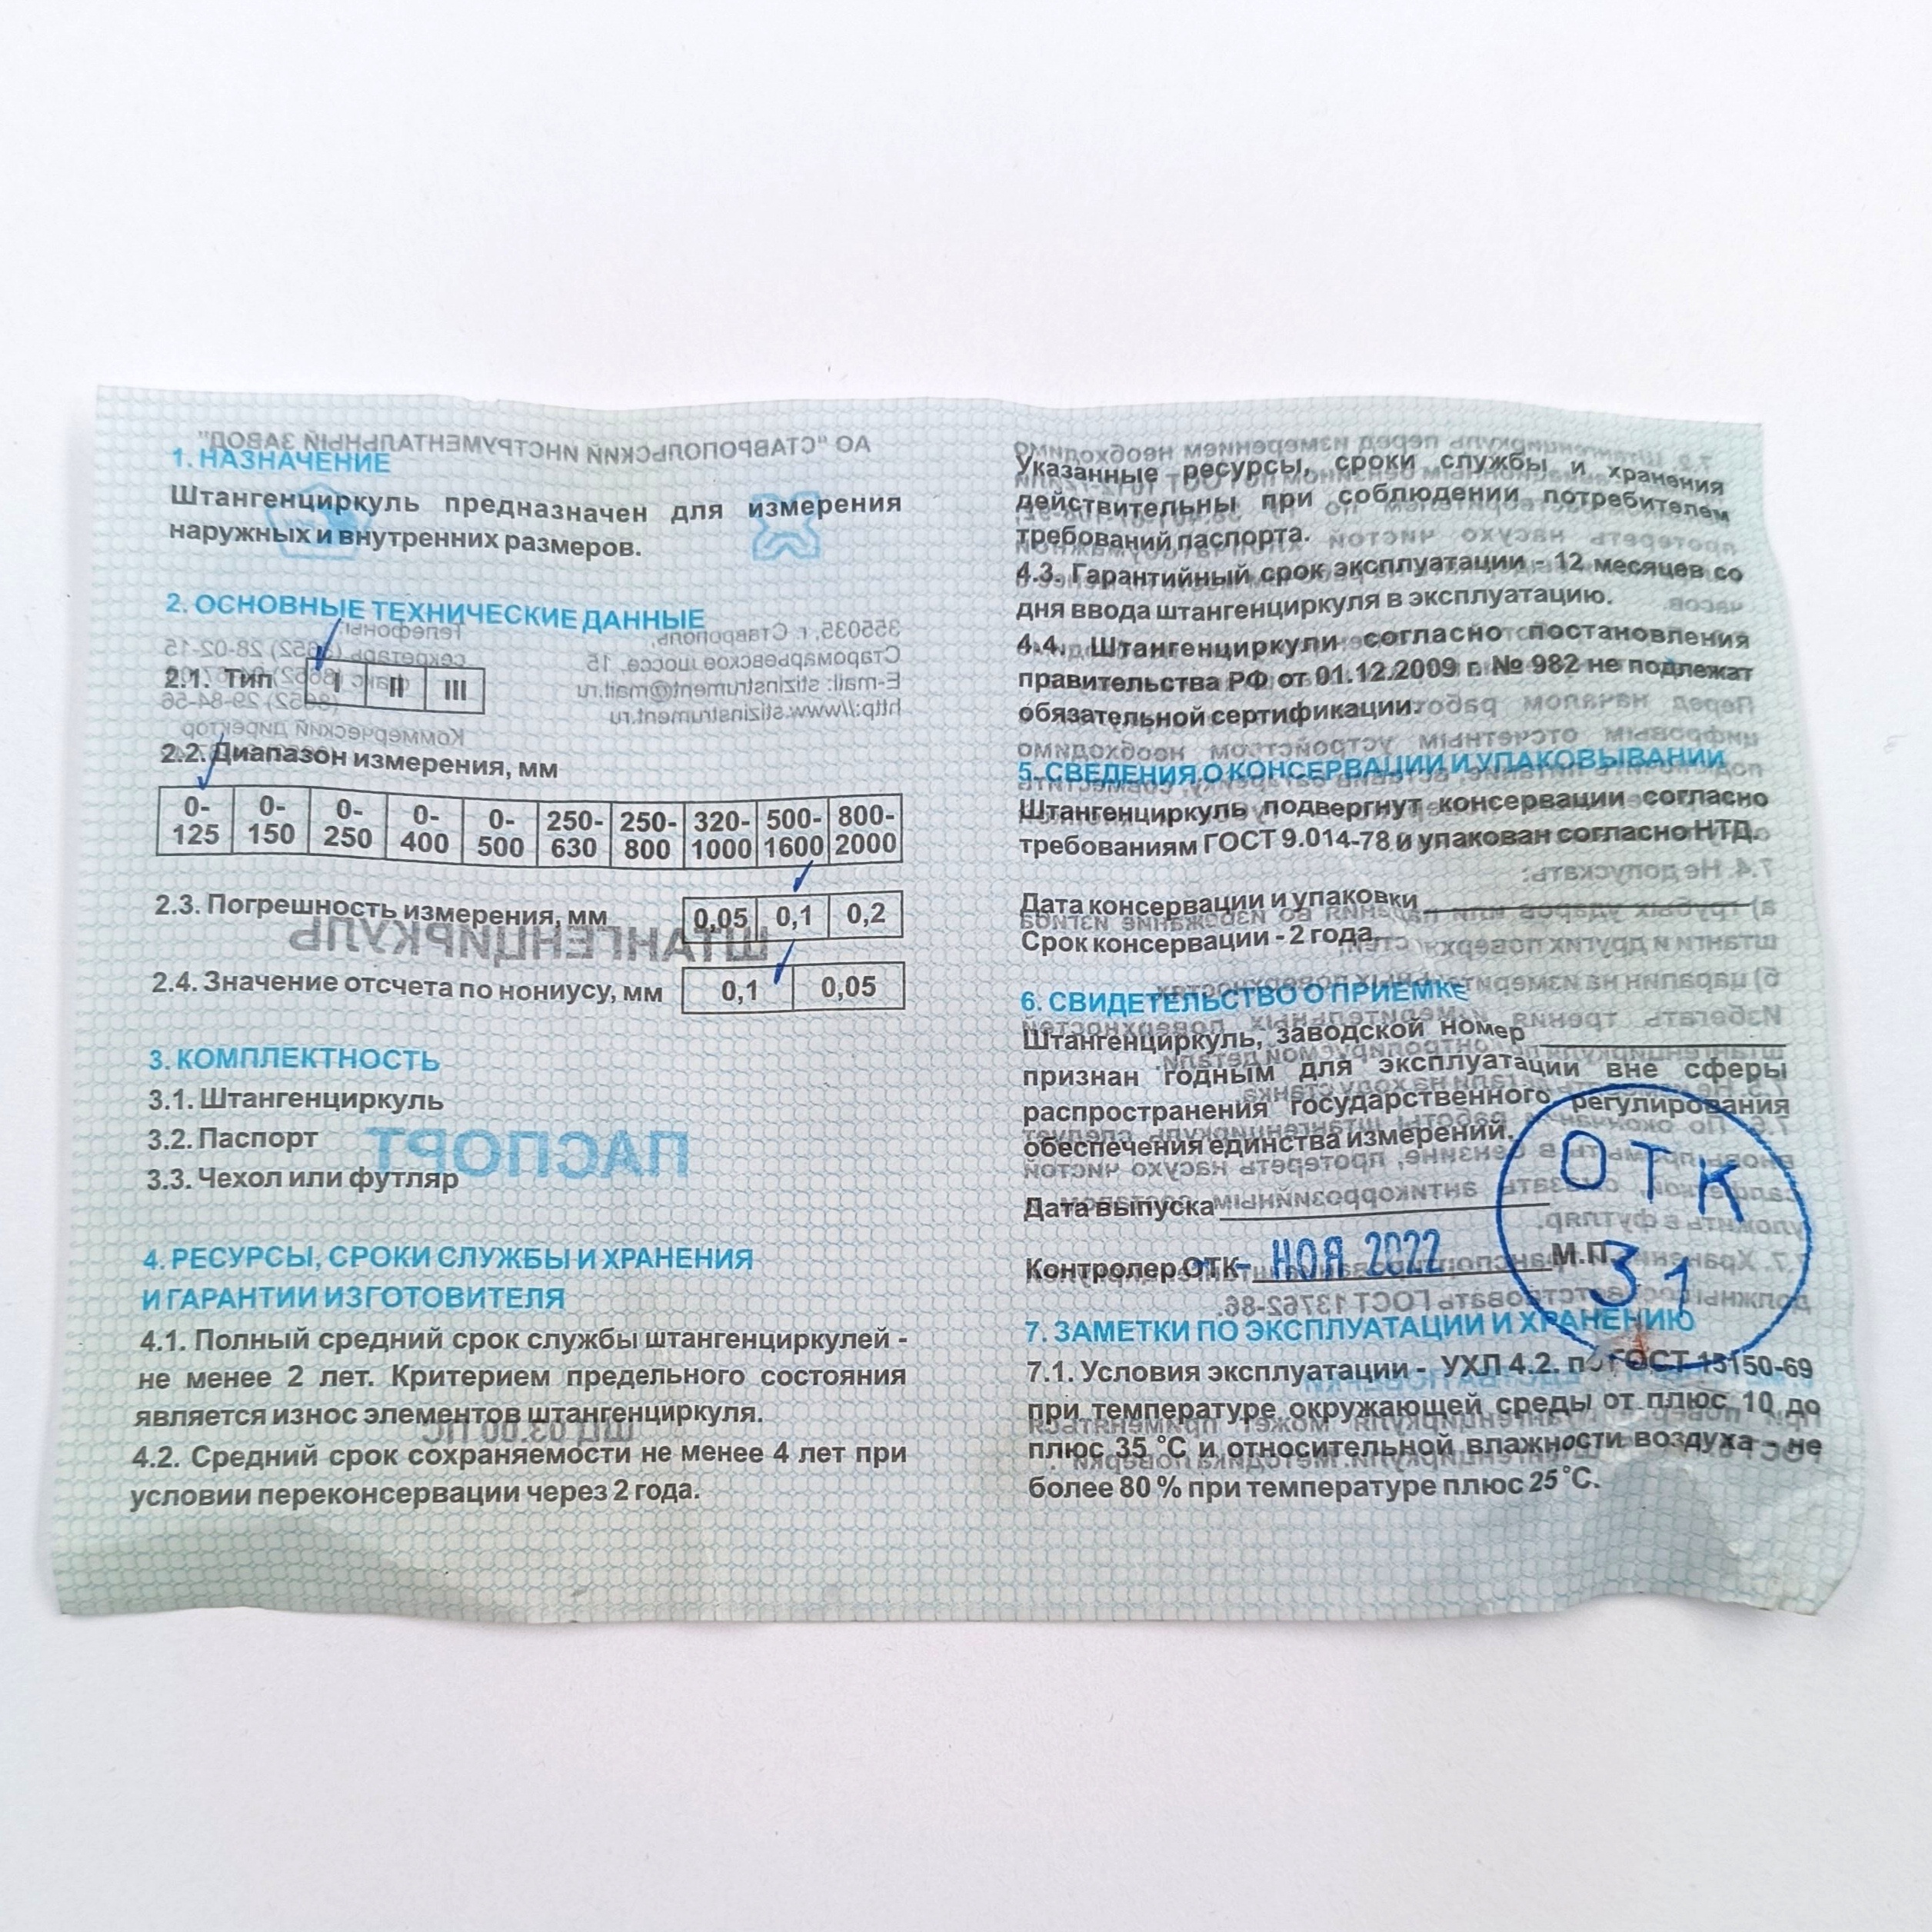 1. НАЗНАЧЕНИЕ
Штангенциркуль предназначен для измерения
наружных и внутренних размеров.
2. ОСНОВНЫЕ ТЕХНИЧЕСКИЕ ДАННЫЕ
2.1. Тип I II III
2.2. Диапазон измерения, мм
0-125 0-150 0-250 0-400 0-500 250-630 250-800 320-1000 500-1600 800-2000
2.3. Погрешность измерения, мм 0,05 0,1 0,2
2.4. Значение отсчета по нониусу, мм 0,1 0,05
3. КОМПЛЕКТНОСТЬ
3.1. Штангенциркуль
3.2. Паспорт
3.3. Чехол или футляр
4. РЕСУРСЫ, СРОКИ СЛУЖБЫ И ХРАНЕНИЯ
И ГАРАНТИИ ИЗГОТОВИТЕЛЯ
4.1. Полный средний срок службы штангенциркулей -
не менее 2 лет. Критерием предельного состояния
является износ элементов штангенциркуля.
4.2. Средний срок сохраняемости не менее 4 лет при
условии переконсервации через 2 года.
Указанные ресурсы, сроки службы и хранения
действительны при соблюдении потребителем
требований паспорта.
4.3. Гарантийный срок эксплуатации - 12 месяцев со
дня ввода штангенциркуля в эксплуатацию.
4.4. Штангенциркули согласно постановления
правительства РФ от 01.12.2009 г. № 982 не подлежат
обязательной сертификации.
5. СВЕДЕНИЯ О КОНСЕРВАЦИИ И УПАКОВЫВАНИИ
Штангенциркуль подвергнут консервации согласно
требованиям ГОСТ 9.014-78 и упакован согласно НТД.
Дата консервации и упаковки
Срок консервации - 2 года.
6. СВИДЕТЕЛЬСТВО О ПРИЕМКЕ
Штангенциркуль, заводской номер
признан годным для эксплуатации вне сферы
распространения государственного регулирования
обеспечения единства измерений.
Дата выпуска
Контролер ОТК- НОЯ 2022 М.П.
ОТК
31
7. ЗАМЕТКИ ПО ЭКСПЛУАТАЦИИ И ХРАНЕНИЮ
7.1. Условия эксплуатации - УХЛ 4.2. по ГОСТ 15150-69
при температуре окружающей среды от плюс 10 до
плюс 35 °С и относительной влажности воздуха - не
более 80 % при температуре плюс 25 °С.